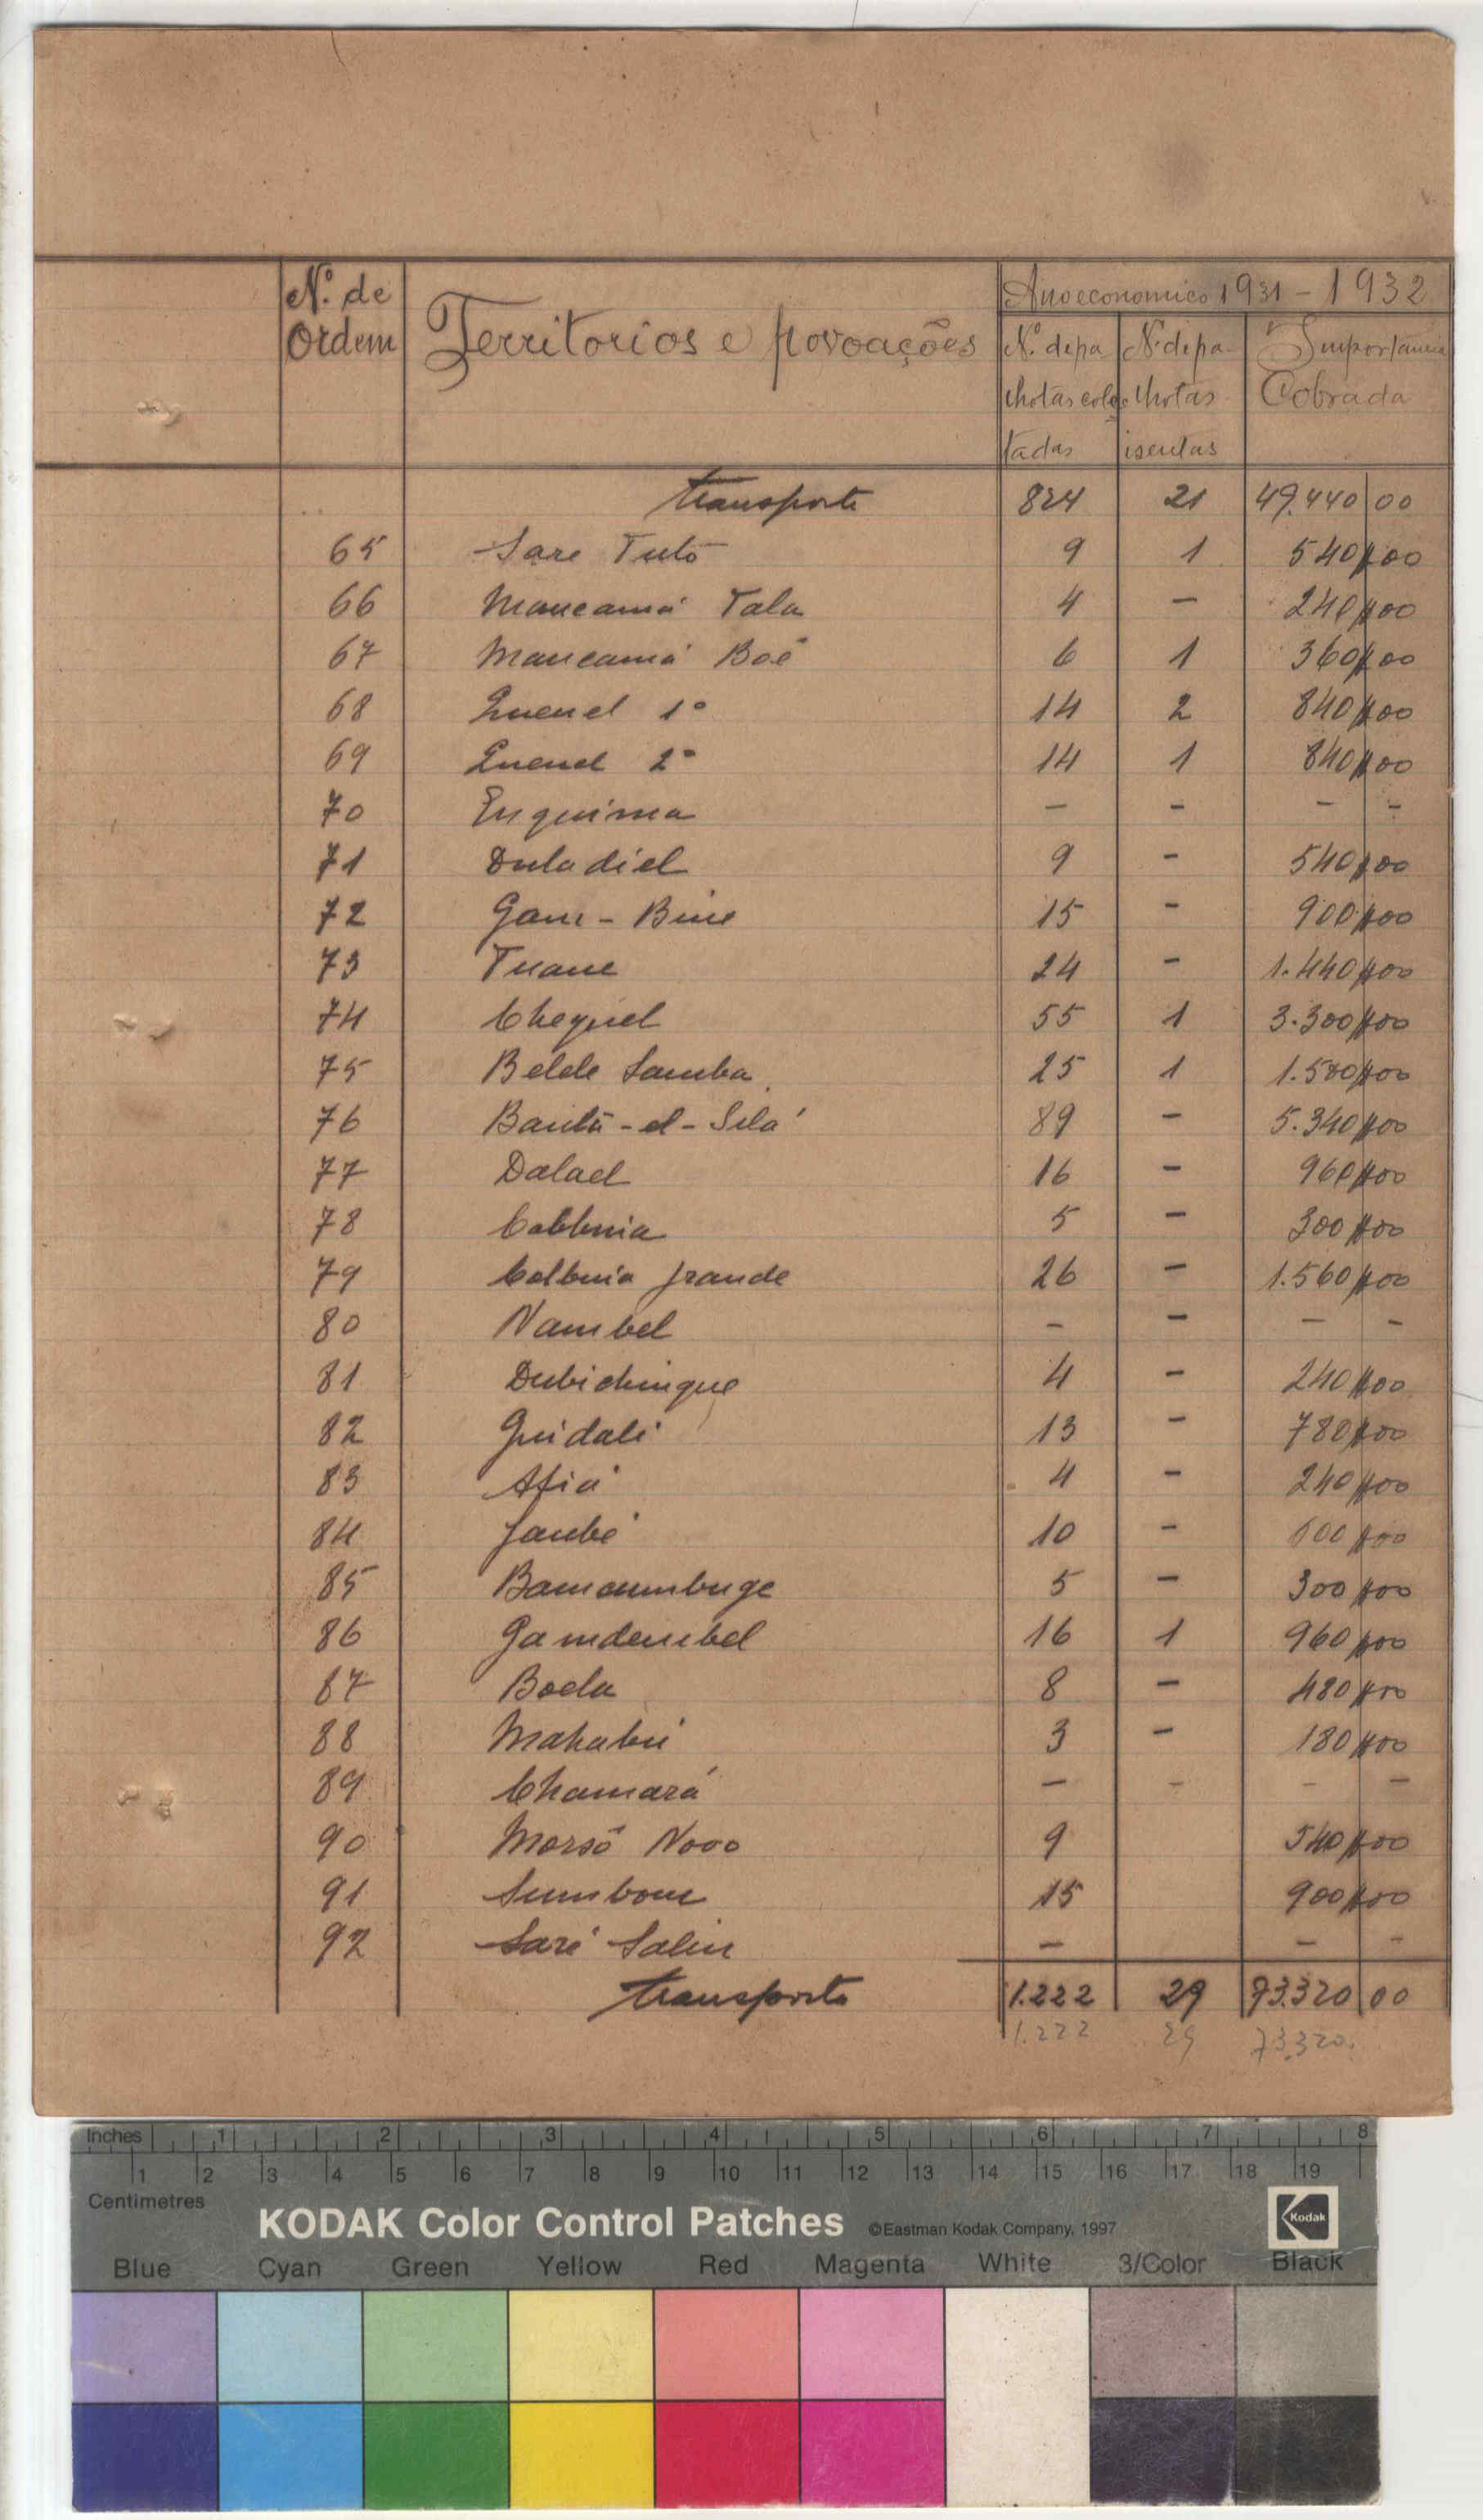 Nº de Ordem | Territorios e povoações | Anoeconomico 1931 - 1932
Nº de pa- | Nº de pa- | Importancia
lhotas colec- | lhotas | Cobrada
tadas | isentas
transporte 824 21 49.440 00
65 Sare Tutó 9 1 540$00
66 Mancamá Tala 4 - 240$00
67 Mancamá Boé 6 1 360$00
68 Quenel 1º 14 2 840$00
69 Quenel 2º 14 1 840$00
70 Enquima - - - -
71 Duladiel 9 - 540$00
72 Gam - Bine 15 - 900$00
73 Tuane 24 - 1.440$00
74 Chequel 55 1 3.300$00
75 Belele Samba 25 1 1.500$00
76 - el - Silá 89 - 5.340$00
77 Dalael 16 - 960$00
78 5 - 300$00
79 grande 26 - 1.560$00
80 Nambel - - - -
81 Dubichinque 4 - 240$00
82 Guidali 13 - 780$00
83 Afiá 4 - 240$00
84 Jambé 10 - 600$00
85 5 - 300$00
86 Gamdembel 16 1 960$00
87 Boela 8 - 480$00
88 Mahabú 3 - 180$00
89 Chamará - - - -
90 Morsó Novo 9 540$00
91 Sumboue 15 900$00
92 Saré Saliu - - -
transporte 1.222 29 73.320 00
1.222 29 73.320.
Inches 1 2 3 4 5 6 7 8
1 2 3 4 5 6 7 8 9 10 11 12 13 14 15 16 17 18 19
Centimetres
KODAK Color Control Patches ©Eastman Kodak Company, 1997 Kodak
Blue Cyan Green Yellow Red Magenta White 3/Color Black